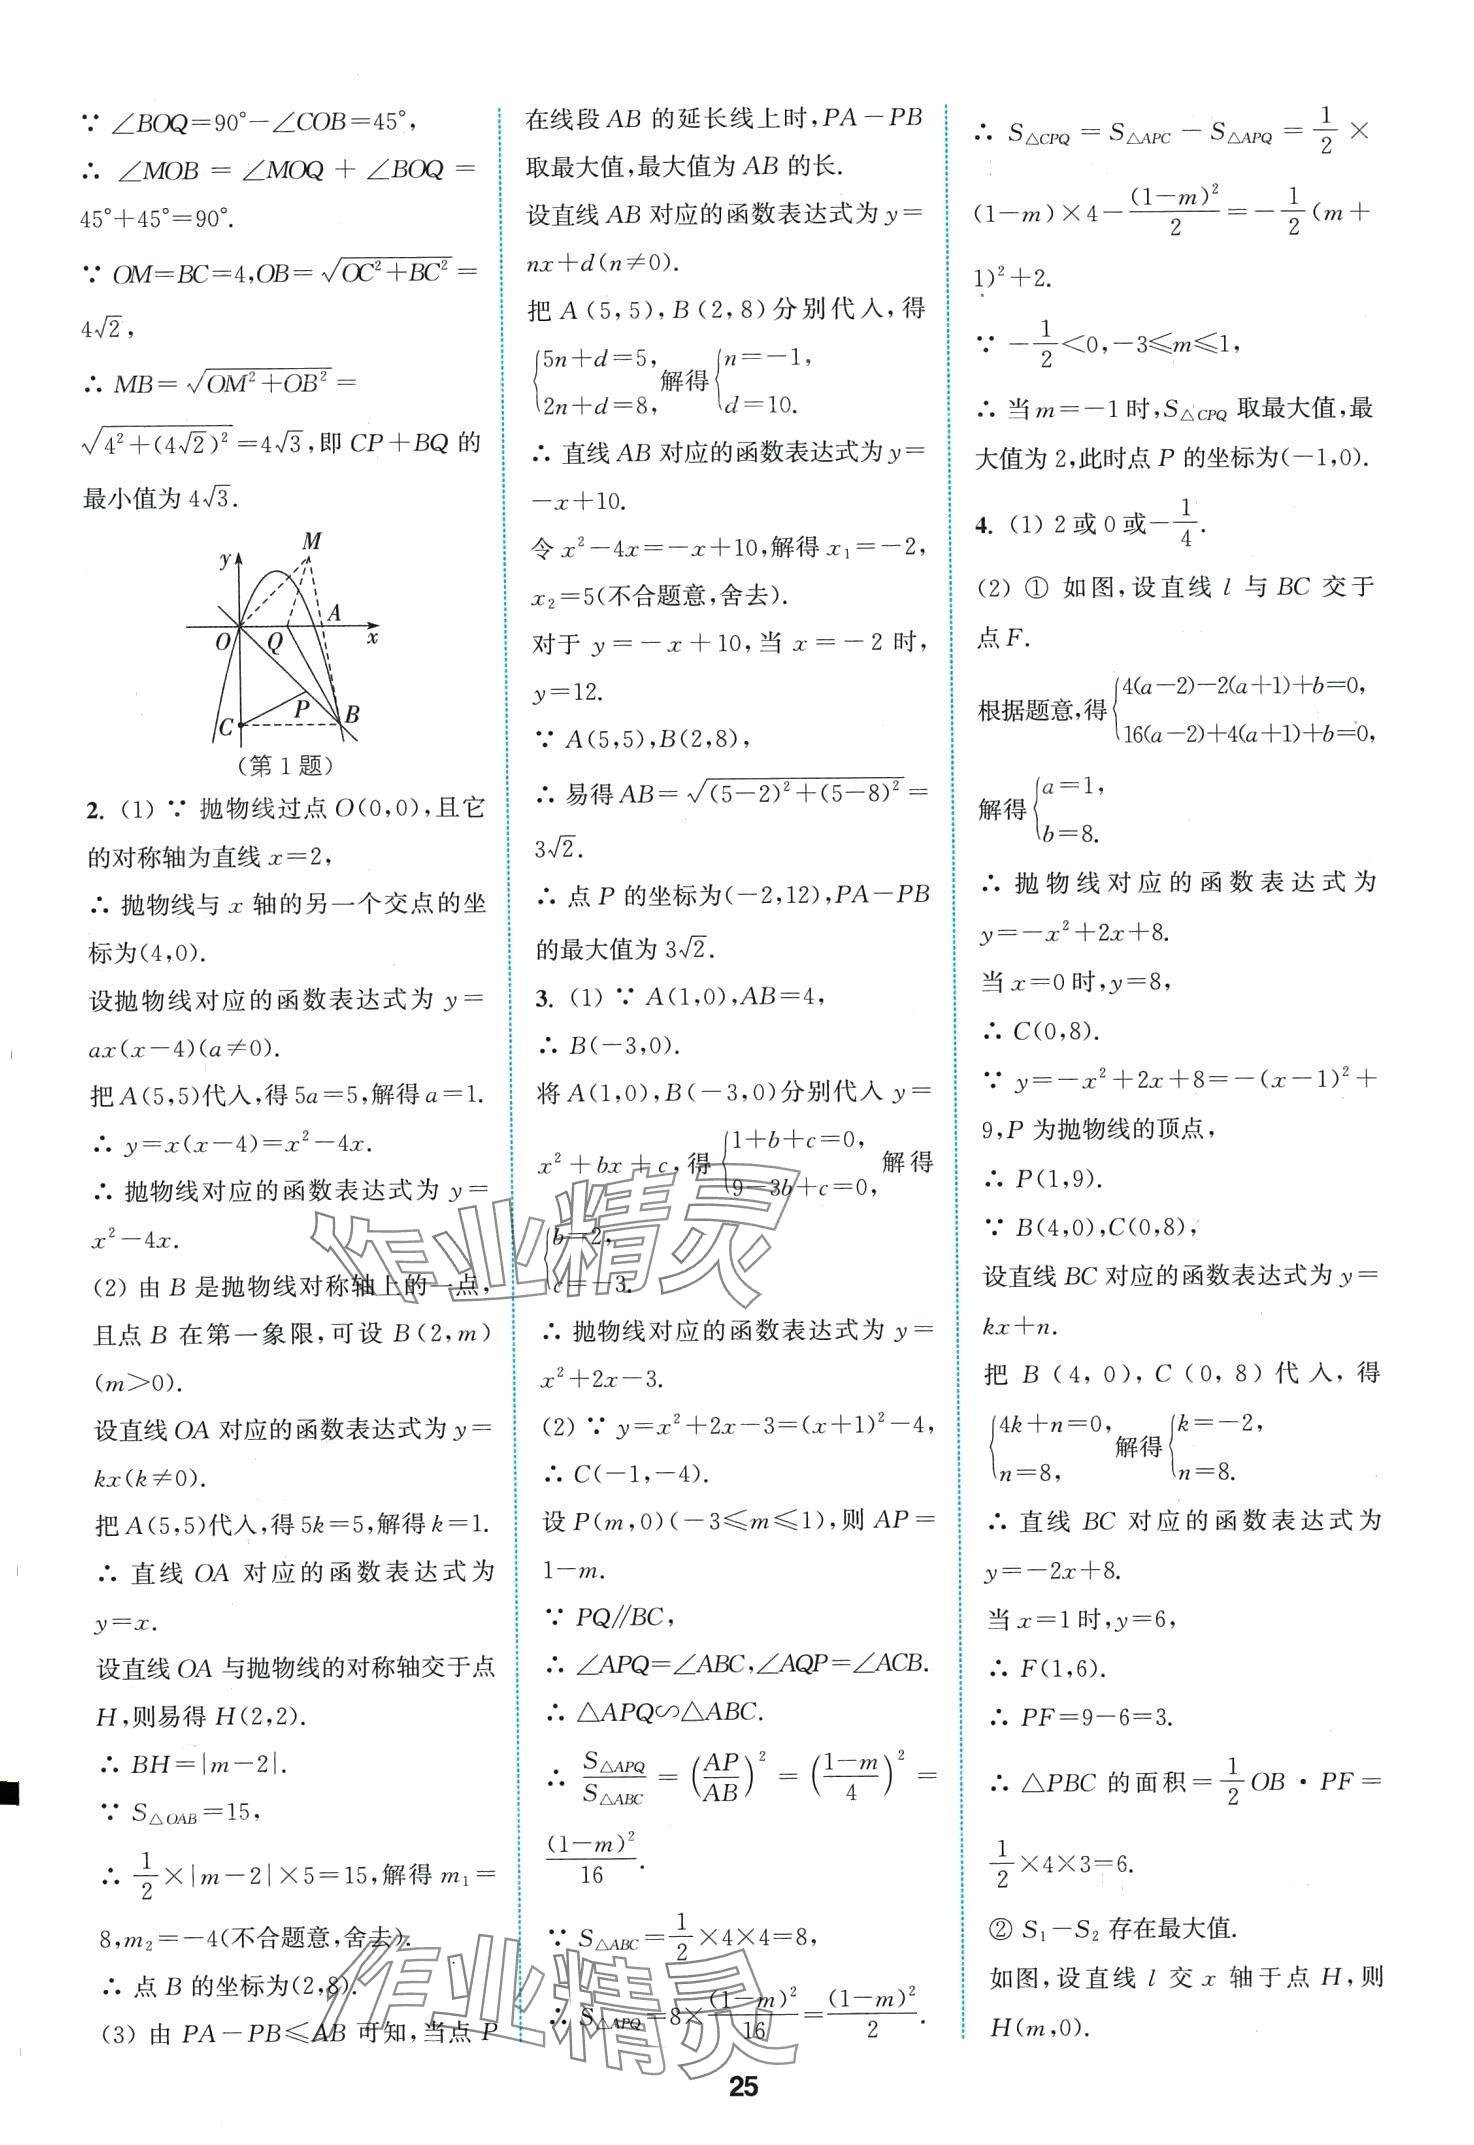 ∵ ∠BOQ=90°-∠COB=45°,
∴ ∠MOB = ∠MOQ + ∠BOQ =
45°+45°=90°.
∵ OM=BC=4,OB=√(OC²+BC²)=
4√2,
∴ MB=√(OM²+OB²)=
√(4²+(4√2)²)=4√3,即 CP+BQ 的
最小值为 4√3.
y M
O Q A x
C P B
(第 1 题)
2. (1) ∵ 抛物线过点 O(0,0),且它
的对称轴为直线 x=2,
∴ 抛物线与 x 轴的另一个交点的坐
标为(4,0).
设抛物线对应的函数表达式为 y=
ax(x-4)(a≠0).
把 A(5,5)代入,得 5a=5,解得 a=1.
∴ y=x(x-4)=x²-4x.
∴ 抛物线对应的函数表达式为 y=
x²-4x.
(2) 由 B 是抛物线对称轴上的一点,
且点 B 在第一象限,可设 B(2,m)
(m>0).
设直线 OA 对应的函数表达式为 y=
kx(k≠0).
把 A(5,5)代入,得 5k=5,解得 k=1.
∴ 直线 OA 对应的函数表达式为
y=x.
设直线 OA 与抛物线的对称轴交于点
H,则易得 H(2,2).
∴ BH=|m-2|.
∵ S△OAB=15,
∴ 1/2×|m-2|×5=15,解得 m₁=
8,m₂=-4(不合题意,舍去).
∴ 点 B 的坐标为(2,8).
(3) 由 PA-PB≤AB 可知,当点 P
在线段 AB 的延长线上时,PA-PB
取最大值,最大值为 AB 的长.
设直线 AB 对应的函数表达式为 y=
nx+d(n≠0).
把 A(5,5),B(2,8)分别代入,得
{5n+d=5, 2n+d=8, 解得 {n=-1, d=10.
∴ 直线 AB 对应的函数表达式为 y=
-x+10.
令 x²-4x=-x+10,解得 x₁=-2,
x₂=5(不合题意,舍去).
对于 y=-x+10,当 x=-2 时,
y=12.
∵ A(5,5),B(2,8),
∴ 易得 AB=√((5-2)²+(5-8)²)=
3√2.
∴ 点 P 的坐标为(-2,12),PA-PB
的最大值为 3√2.
3. (1) ∵ A(1,0),AB=4,
∴ B(-3,0).
将 A(1,0),B(-3,0)分别代入 y=
x²+bx+c,得 {1+b+c=0, 9-3b+c=0, 解得
{b=2, c=-3.
∴ 抛物线对应的函数表达式为 y=
x²+2x-3.
(2) ∵ y=x²+2x-3=(x+1)²-4,
∴ C(-1,-4).
设 P(m,0)(-3≤m≤1),则 AP=
1-m.
∵ PQ∥BC,
∴ ∠APQ=∠ABC,∠AQP=∠ACB.
∴ △APQ∽△ABC.
∴ S△APQ/S△ABC = (AP/AB)² = ((1-m)/4)² =
(1-m)²/16.
∵ S△ABC=1/2×4×4=8,
∴ S△APQ=8×(1-m)²/16=(1-m)²/2.
∴ S△CPQ = S△APC - S△APQ = 1/2 ×
(1-m)×4-(1-m)²/2=-1/2(m+
1)²+2.
∵ -1/2<0,-3≤m≤1,
∴ 当 m=-1 时,S△CPQ 取最大值,最
大值为 2,此时点 P 的坐标为(-1,0).
4. (1) 2 或 0 或-1/4.
(2) ① 如图,设直线 l 与 BC 交于
点 F.
根据题意,得 {4(a-2)-2(a+1)+b=0, 16(a-2)+4(a+1)+b=0,
解得 {a=1, b=8.
∴ 抛物线对应的函数表达式为
y=-x²+2x+8.
当 x=0 时,y=8,
∴ C(0,8).
∵ y=-x²+2x+8=-(x-1)²+
9,P 为抛物线的顶点,
∴ P(1,9).
∵ B(4,0),C(0,8),
设直线 BC 对应的函数表达式为 y=
kx+n.
把 B(4,0),C(0,8)代入,得
{4k+n=0, n=8, 解得 {k=-2, n=8.
∴ 直线 BC 对应的函数表达式为
y=-2x+8.
当 x=1 时,y=6,
∴ F(1,6).
∴ PF=9-6=3.
∴ △PBC 的面积=1/2 OB·PF=
1/2×4×3=6.
② S₁-S₂ 存在最大值.
如图,设直线 l 交 x 轴于点 H,则
H(m,0).
作业精灵
作业精灵
25